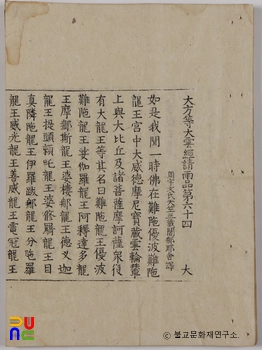 大方等大雲經請雨品第六十四
大
如是我聞一時佛在難陁優波難陁
龍王宮中大威德摩尼寶藏雲輪輦
上與大比丘及諸菩薩摩訶薩衆復
有大龍王等其名曰難陁龍王優波
難陁龍王娑伽羅龍王阿耨達多龍
王摩那斯龍王婆樓那龍王德叉迦
龍王提頭賴吒龍王婆脩羈龍王目
真隣陁龍王伊羅跋那龍王分陁羅
龍王威光龍王善威龍王電冠龍王
불교문화재연구소.